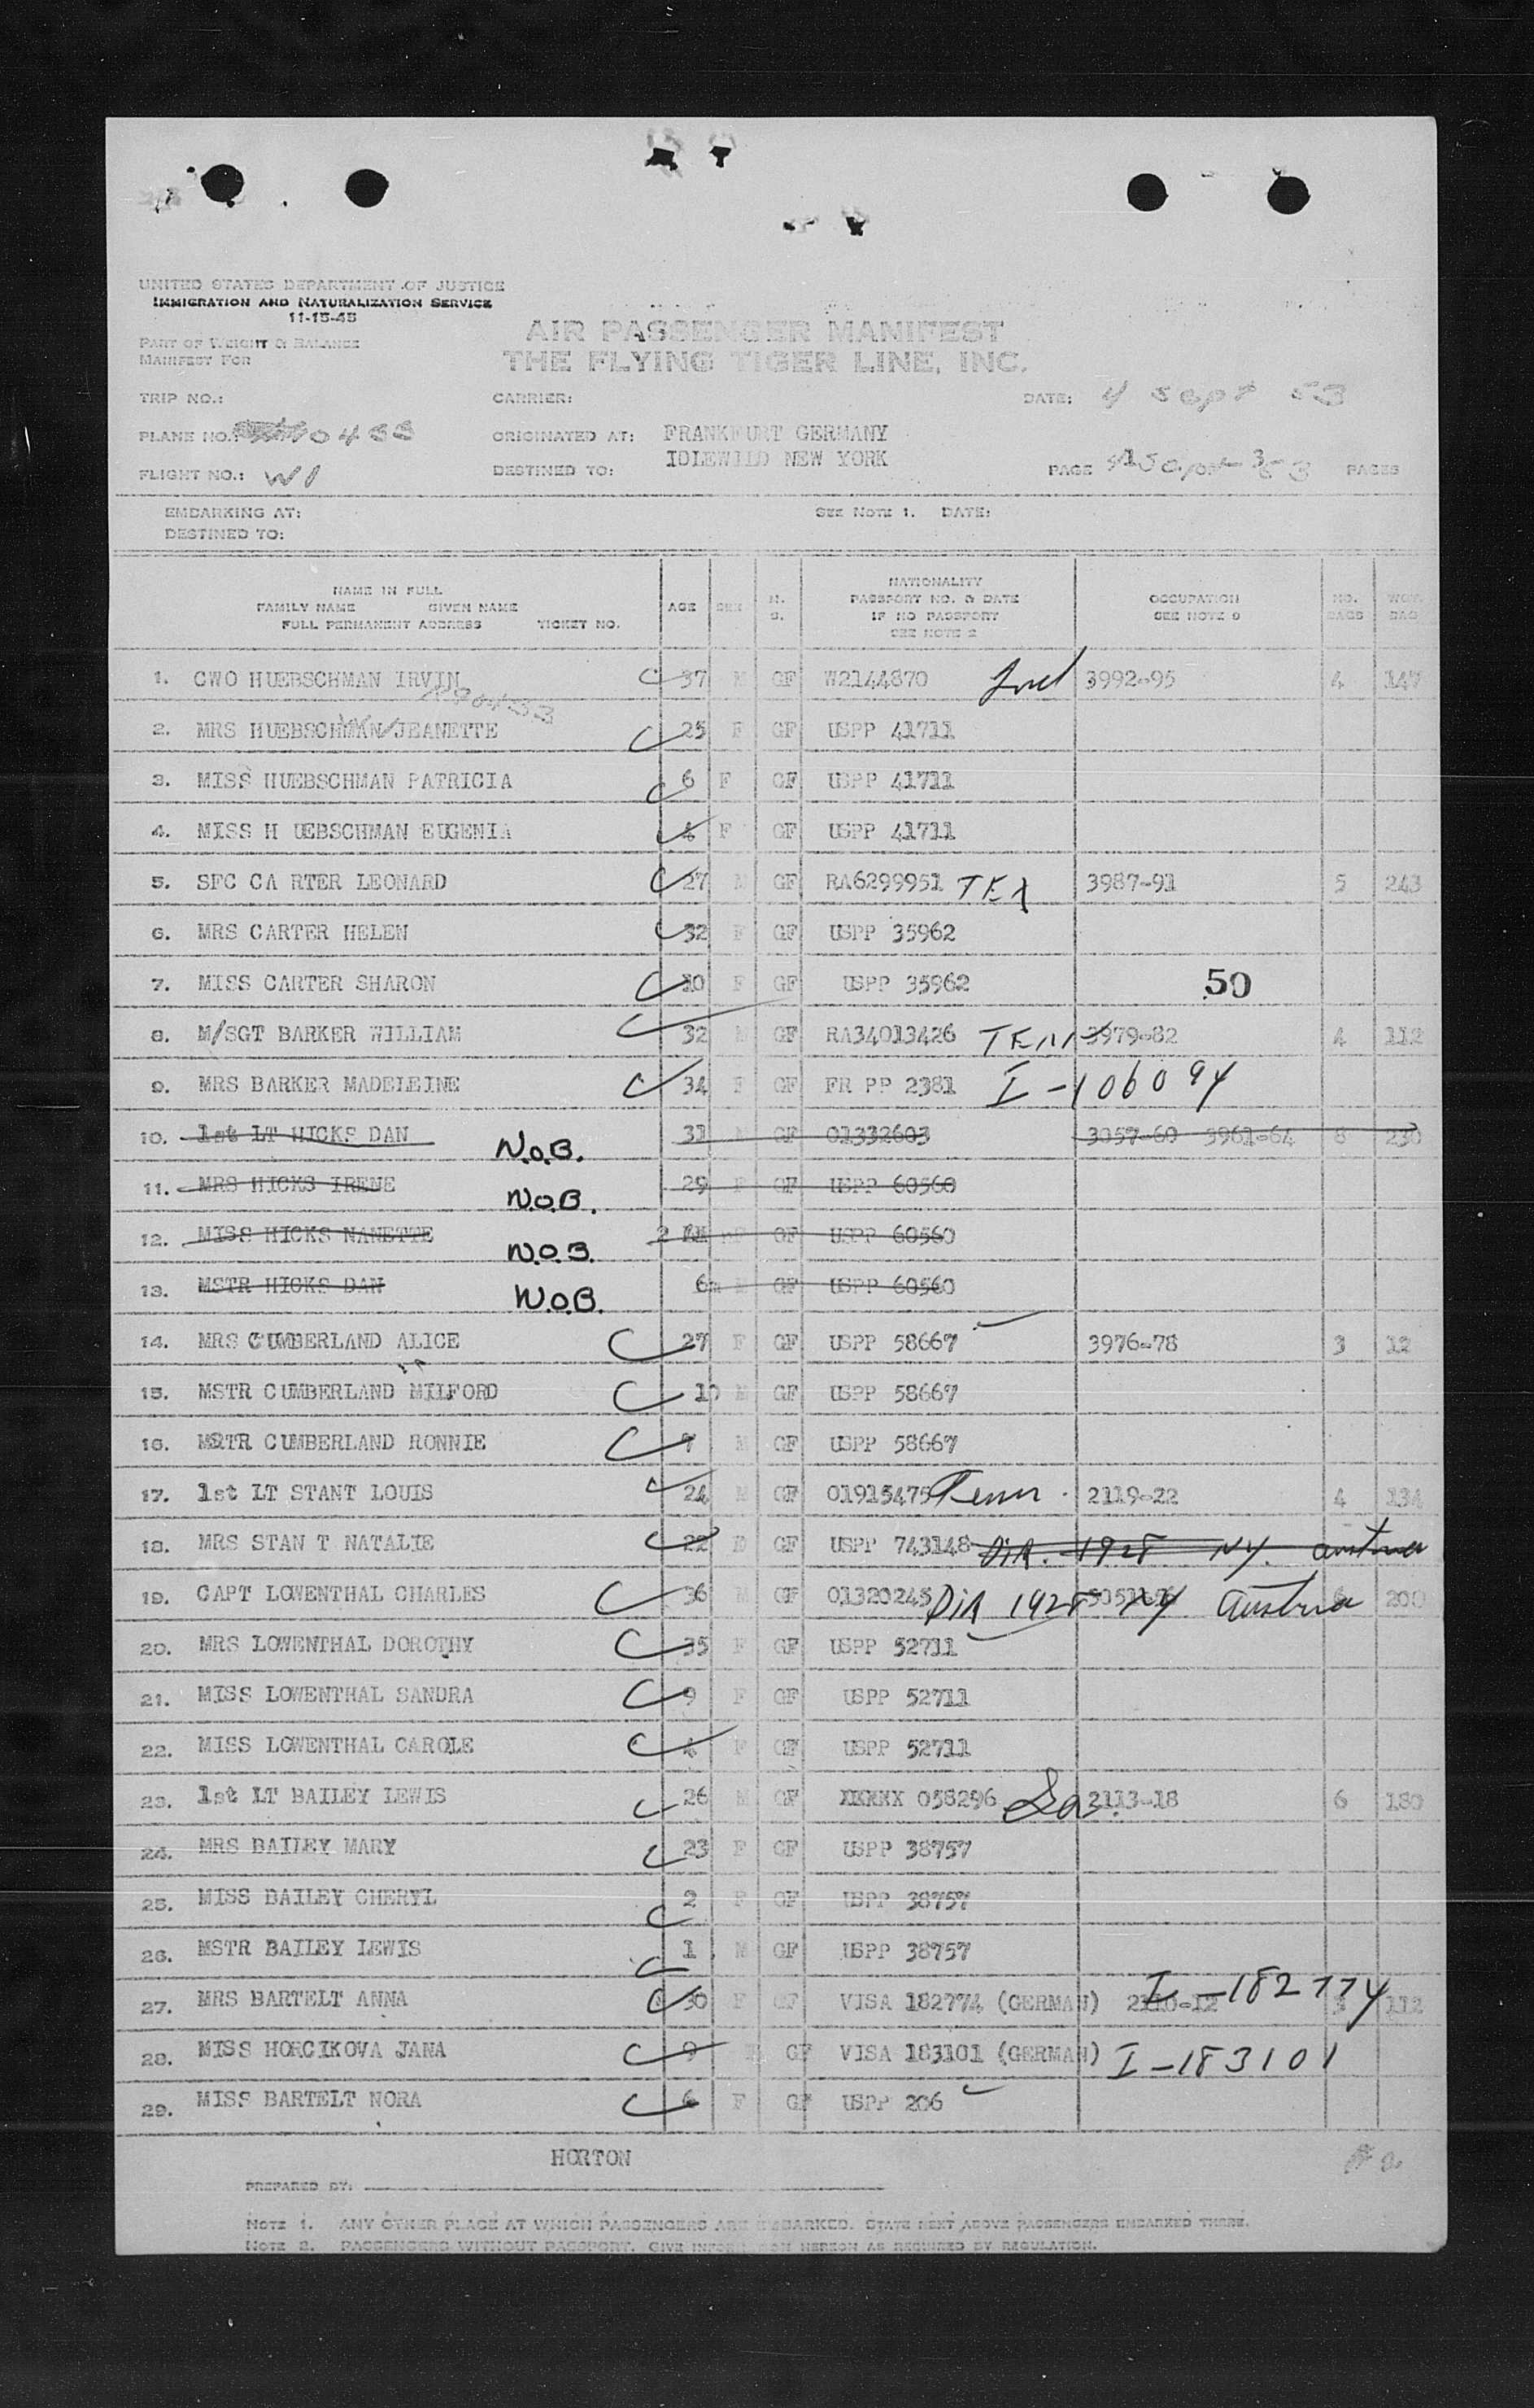 UNITED STATES DEPARTMENT OF JUSTICE
IMMIGRATION AND NATURALIZATION SERVICE
11-15-45
AIR PASSENGER MANIFEST
THE FLYING TIGER LINE, INC.
PART OF WEIGHT & BALANCE
MANIFEST FOR
TRIP NO.: CARRIER: DATE: 4 Sept 53
PLANE NO.: ORIGINATED AT: FRANKFURT GERMANY
FLIGHT NO.: W1 DESTINED TO: IDLEWILD NEW YORK PAGE PAGES
EMBARKING AT: SEE NOTE 1. DATE:
DESTINED TO:
NAME IN FULL
FAMILY NAME GIVEN NAME
FULL PERMANENT ADDRESS TICKET NO.
AGE SEX M. S.
NATIONALITY
PASSPORT NO. & DATE
IF NO PASSPORT
SEE NOTE 2
OCCUPATION
SEE NOTE
NO. BAGS WGT. BAG
1. CWO HUEBSCHMAN IRVIN 37 M GF W2144870 Ind 3992-95 4 147
2. MRS HUEBSCHMAN JEANETTE 25 F GF USPP 41711
3. MISS HUEBSCHMAN PATRICIA 6 F GF USPP 41711
4. MISS H UEBSCHMAN EUGENIA 4 F GF USPP 41711
5. SFC CA RTER LEONARD 27 M GF RA6299951 TEX 3987-91 5 243
6. MRS CARTER HELEN 32 F GF USPP 35962
7. MISS CARTER SHARON 10 F GF USPP 35962 50
8. M/SGT BARKER WILLIAM 32 M GF RA34013426 TENN 3979-82 4 112
9. MRS BARKER MADELEINE 34 F GF FR PP 2381 I-106094
10. 1st LT HICKS DAN N.O.B. 31 M GF 01332603 3057-60 3961-64 8 230
11. MRS HICKS IRENE N.O.B. 29 F GF USPP 60560
12. MISS HICKS NANETTE N.O.B. 2 F GF USPP 60560
13. MSTR HICKS DAN N.O.B. 6m M GF USPP 60560
14. MRS CUMBERLAND ALICE 27 F GF USPP 58667 3976-78 3 12
15. MSTR CUMBERLAND MILFORD 10 M GF USPP 58667
16. MSTR CUMBERLAND RONNIE 7 M GF USPP 58667
17. 1st LT STANT LOUIS 24 M GF 01915475 Tenn. 2119-22 4 134
18. MRS STAN T NATALIE 22 F GF USPP 743148 DiA. 1928 NY. Austria
19. CAPT LOWENTHAL CHARLES 36 M GF 01320245 DiA 1928 NY Austria 6 200
20. MRS LOWENTHAL DOROTHY 35 F GF USPP 52711
21. MISS LOWENTHAL SANDRA 9 F GF USPP 52711
22. MISS LOWENTHAL CAROLE 4 F GF USPP 52711
23. 1st LT BAILEY LEWIS 26 M GF XXXXX 058296 2113-18 6 180
24. MRS BAILEY MARY 23 F GF USPP 38757
25. MISS BAILEY CHERYL 2 F GF USPP 38757
26. MSTR BAILEY LEWIS 1 M GF USPP 38757
27. MRS BARTELT ANNA 30 F GF VISA 182774 (GERMAN) 2110-12 I-182774 3 112
28. MISS HORCIKOVA JANA 9 F GF VISA 183101 (GERMAN) I-183101
29. MISS BARTELT NORA 6 F GF USPP 206
HORTON
PREPARED BY:
NOTE 1. ANY OTHER PLACE AT WHICH PASSENGERS ARE EMBARKED. STATE NEXT ABOVE PASSENGERS EMBARKED THERE.
NOTE 2. PASSENGERS WITHOUT PASSPORT. GIVE INFORMATION HEREON AS REQUIRED BY REGULATION.